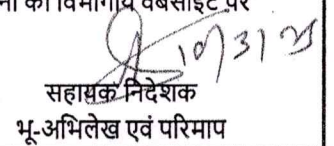 की विभागीय वेबसाईट पर
10/3/25
सहायक निदेशक
भू-अभिलेख एवं परिमाप